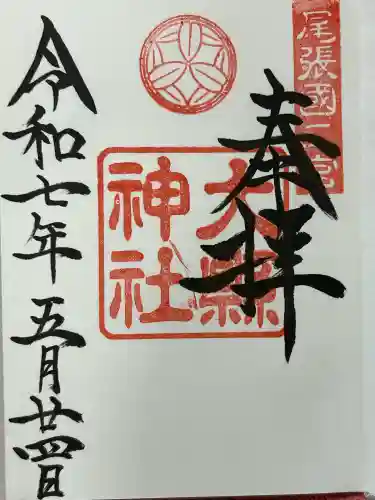 尾張國二宮
奉拝
大縣神社
令和七年五月廿四日